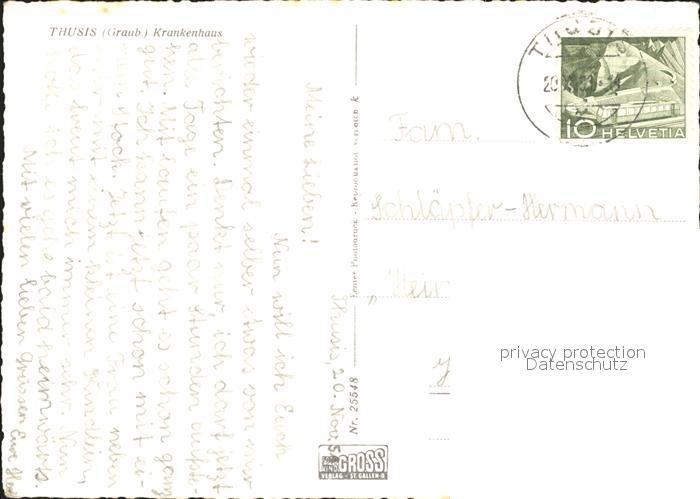 THUSIS (Graub.) Krankenhaus
Thusis, 20. Nov. 5
Meine Lieben!
Nun will ich Euch
wieder einmal selber etwas von mir
berichten. Denkt nur ich darf jetzt
alle Tage ein paar Stunden aufste-
hen. Mit Laufen geht es schon ganz
gut. Ich kann jetzt schon mit ei-
nem Stock. Jetzt ist eine Frau neben
mir mit einem kleinen
das freut mich immer sehr. Nun
hoffe ich es gehe bald heimwärts.
Mit vielen lieben Grüssen Eure
Nr. 25548
GROSS
VERLAG - ST. GALLEN-O
THUSIS
10 HELVETIA
Fam.
Schläpfer-Hermann
"Heir
privacy protection
Datenschutz